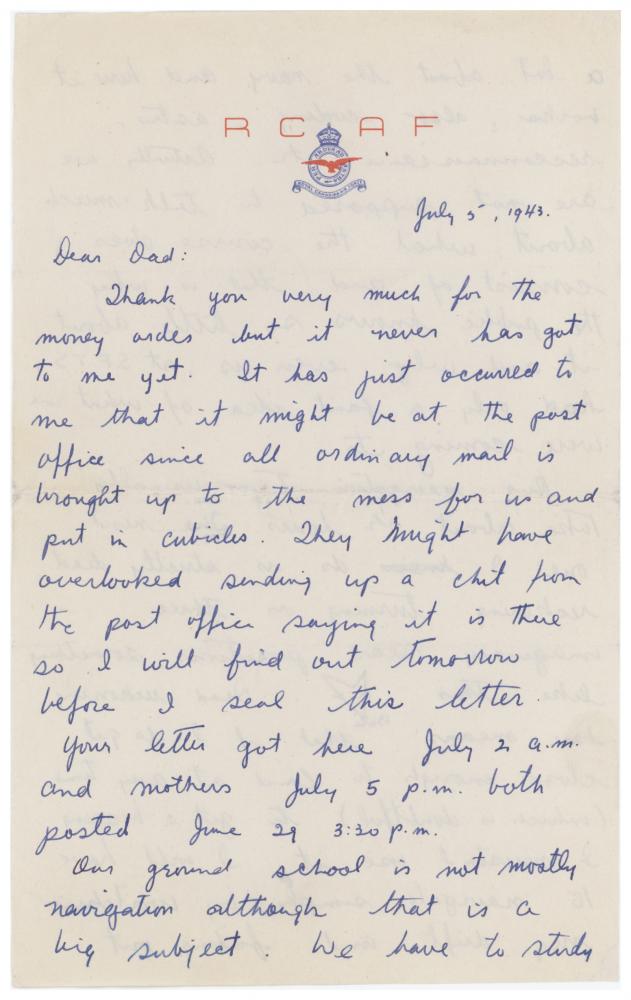 R C A F
PER ARDUA AD ASTRA
ROYAL CANADIAN AIR FORCE
July 5, 1943.
Dear Dad:
Thank you very much for the
money order but it never has got
to me yet. It has just occurred to
me that it might be at the post
office since all ordinary mail is
brought up to the mess for us and
put in cubicles. They might have
overlooked sending up a chit from
the post office saying it is there
so I will find out tomorrow
before I seal this letter.
Your letter got here July 2 a.m.
and mothers July 5 p.m. both
posted June 29 3:30 p.m.
Our ground school is not mostly
navigation although that is a
big subject. We have to study